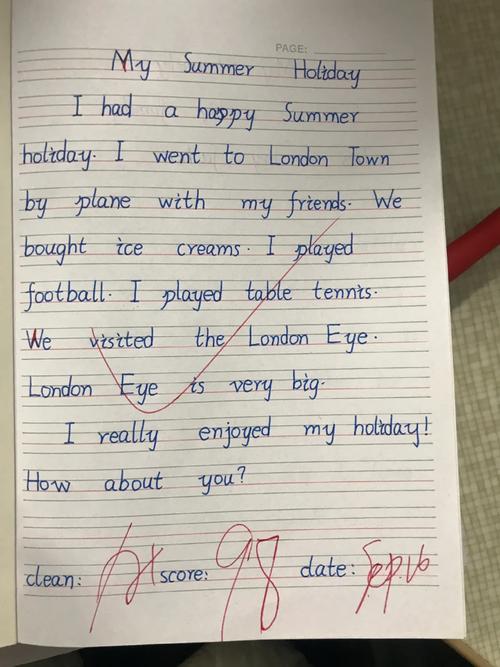 PAGE:
My Summer Holiday
I had a happy Summer
holiday. I went to London Town
by plane with my friends. We
bought ice creams. I played
football. I played table tennis.
We visited the London Eye.
London Eye is very big.
I really enjoyed my holiday!
How about you?
clean: A+ score: 98 date: Sep.16